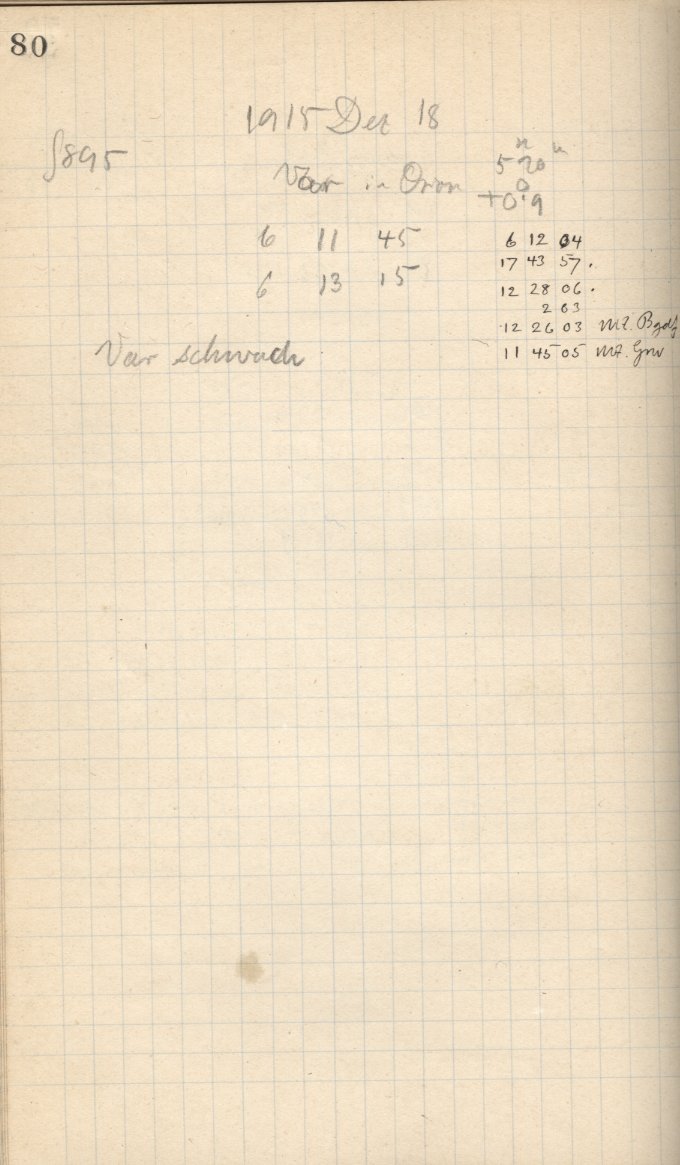 80
1915 Dez 18
S895
Var in Orion
5 20
+0.9
6 11 45
6 13 15
6 12 04
17 43 57.
12 28 06.
2 03
12 26 03 MZ. Bgdf
11 45 05 MZ. Grw
Var schwach